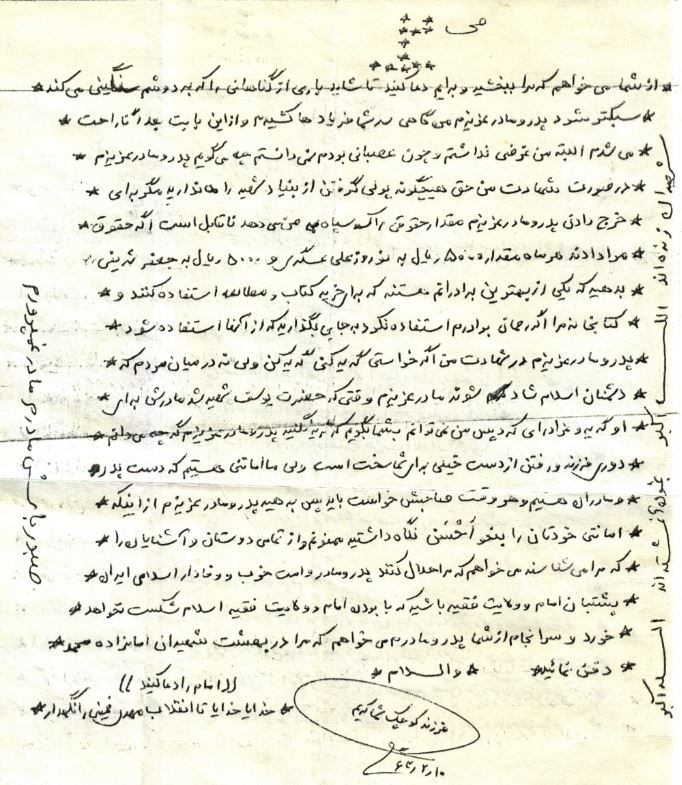 از شما می خواهم که مرا ببخشید و برایم دعا کنید تا شاید باری از گناهانی را که به دوشم سنگینی می کند
سبکتر شود پدر و مادر عزیزم می گاهی سر شما فریادها کشیدم و از این بابت بعداً ناراحت
می شدم البته من غرضی نداشتم و چون عصبانی بودم نمی دانستم چه می گویم پدر و مادر عزیزم
در صورت شهادت من حق هیچگونه پولی گرفتن از بنیاد شهید را ندارید مگر برای
خرج دادن پدر و مادر عزیزم مقدار حقوقی را که سپاه می دهد ناقابل است اگه حقوق
مرا دادند هر ماه مقدار ۵۰۰۰ ریال به نوروزعلی عسگری و ۵۰۰۰ ریال به جعفر
بدهید که یکی از بهترین برادرانم هستند که برای خرید کتاب و مطالعه استفاده کنند و
کتابخانه مرا اگر رحمان برادرم استفاده نکرد به جایی بگذارید که از آنها استفاده شود
پدر و مادر عزیزم در شهادت من اگه خواستی گریه کنی گریه کن ولی نه در میان مردم که
دشمنان اسلام شاد شوند مادر عزیزم وقتی که حضرت یوسف شهید شد مادرش برای
او گریه و عزاداری کرد پس من نمی توانم بشما بگویم که گریه نکنید پدر و مادر عزیزم گرچه می دانم
دوری فرزند و رفتن از دست خیلی برای شما سخت است ولی ما امانتی هستیم که دست پدر
و مادران هستیم و هر وقت صاحبش خواست باید پس بدهید پدر و مادر عزیزم از اینکه
امانتی خودتان را بنحو اَحْسَن نگاه داشتید ممنونم و از تمامی دوستان و آشنایان را
که مرا می شناسند می خواهم که مرا حلال کنند پدر و مادر و امت خوب و وفادار اسلامی ایران
پشتیبان امام و ولایت فقیه باشید که با بودن امام و ولایت فقیه اسلام شکست نخواهد
خورد و سرانجام از شما پدر و مادرم می خواهم که مرا در بهشت شهیدان امامزاده محمد
دفن نمائید والسلام
((امام را دعا کنید))
خدایا خدایا تا انقلاب مهدی خمینی را نگهدار
فرزند کوچک شما کریم
۱۰ر۲ر۶۴
شهیدان زنده اند الله اکبر
بخون آغشته اند الله اکبر
صبور باش ای مادرم مادر غمپرورم